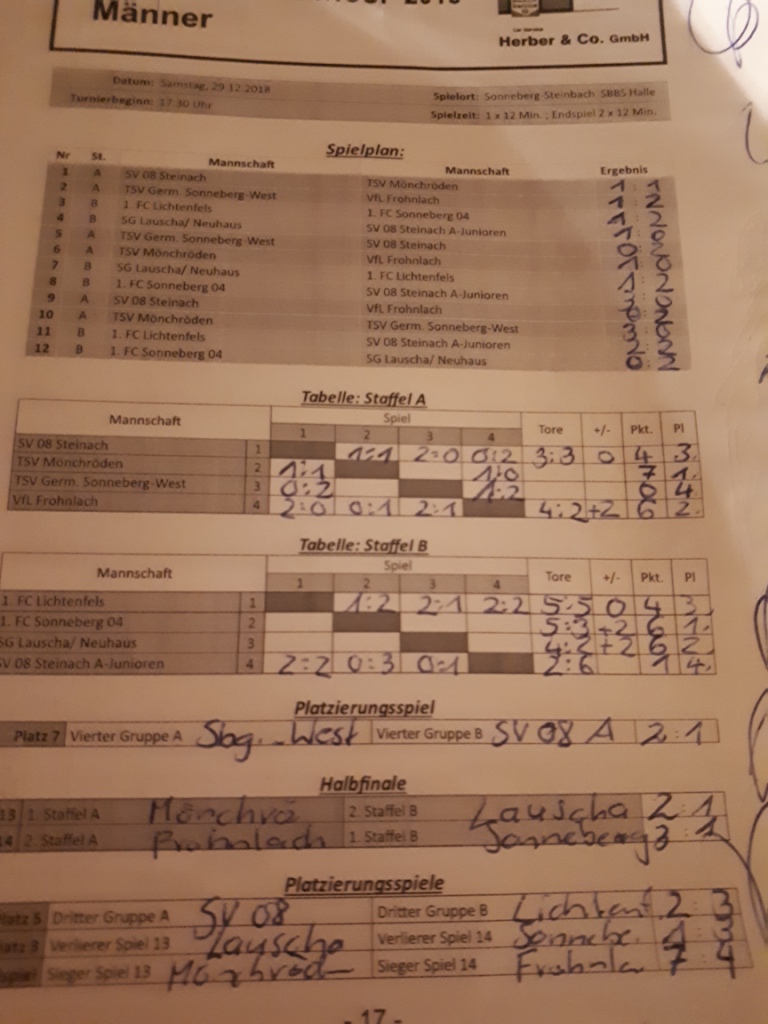 Männer
Herber & Co. GmbH
Datum: Samstag, 29.12.2018
Turnierbeginn: 17.30 Uhr
Spielort: Sonneberg-Steinbach SBBS Halle
Spielzeit: 1 x 12 Min. ; Endspiel 2 x 12 Min.
Spielplan:
Nr St. Mannschaft Mannschaft Ergebnis
1 A SV 08 Steinach TSV Mönchröden 1 : 1
2 A TSV Germ. Sonneberg-West VfL Frohnlach 1 : 2
3 B 1. FC Lichtenfels 1. FC Sonneberg 04 1 : 2
4 B SG Lauscha/ Neuhaus SV 08 Steinach A-Junioren
5 A TSV Germ. Sonneberg-West SV 08 Steinach
6 A TSV Mönchröden VfL Frohnlach
7 B SG Lauscha/ Neuhaus 1. FC Lichtenfels
8 B 1. FC Sonneberg 04 SV 08 Steinach A-Junioren
9 A SV 08 Steinach VfL Frohnlach
10 A TSV Mönchröden TSV Germ. Sonneberg-West
11 B 1. FC Lichtenfels SV 08 Steinach A-Junioren
12 B 1. FC Sonneberg 04 SG Lauscha/ Neuhaus
Tabelle: Staffel A
Mannschaft Spiel Tore +/- Pkt. Pl
1 2 3 4
SV 08 Steinach 1 1:1 2:0 0:2 3:3 0 4 3.
TSV Mönchröden 2 1:1 1:0 7 1.
TSV Germ. Sonneberg-West 3 0:2 1:2 0 4
VfL Frohnlach 4 2:0 0:1 2:1 4:2 +2 6 2.
Tabelle: Staffel B
Mannschaft Spiel Tore +/- Pkt. Pl
1 2 3 4
1. FC Lichtenfels 1 1:2 2:1 2:2 5:5 0 4 3.
1. FC Sonneberg 04 2 5:3 +2 6 1.
SG Lauscha/ Neuhaus 3 4:2 +2 6 2.
SV 08 Steinach A-Junioren 4 2:2 0:3 0:1 2:6 1 4.
Platzierungsspiel
Platz 7 Vierter Gruppe A Sbg. West Vierter Gruppe B SV 08 A 2 : 1
Halbfinale
13 1. Staffel A Mönchrö 2. Staffel B Lauscha 2 : 1
14 2. Staffel A Frohnlach 1. Staffel B Sonneberg 3 : 1
Platzierungsspiele
Platz 5 Dritter Gruppe A SV 08 Dritter Gruppe B Lichtenf. 2 : 3
Platz 3 Verlierer Spiel 13 Lauscha Verlierer Spiel 14 Sonnebe. 1 : 3
Sieger Spiel 13 Mönchröd Sieger Spiel 14 Frohnla 7 : 4
- 17 -